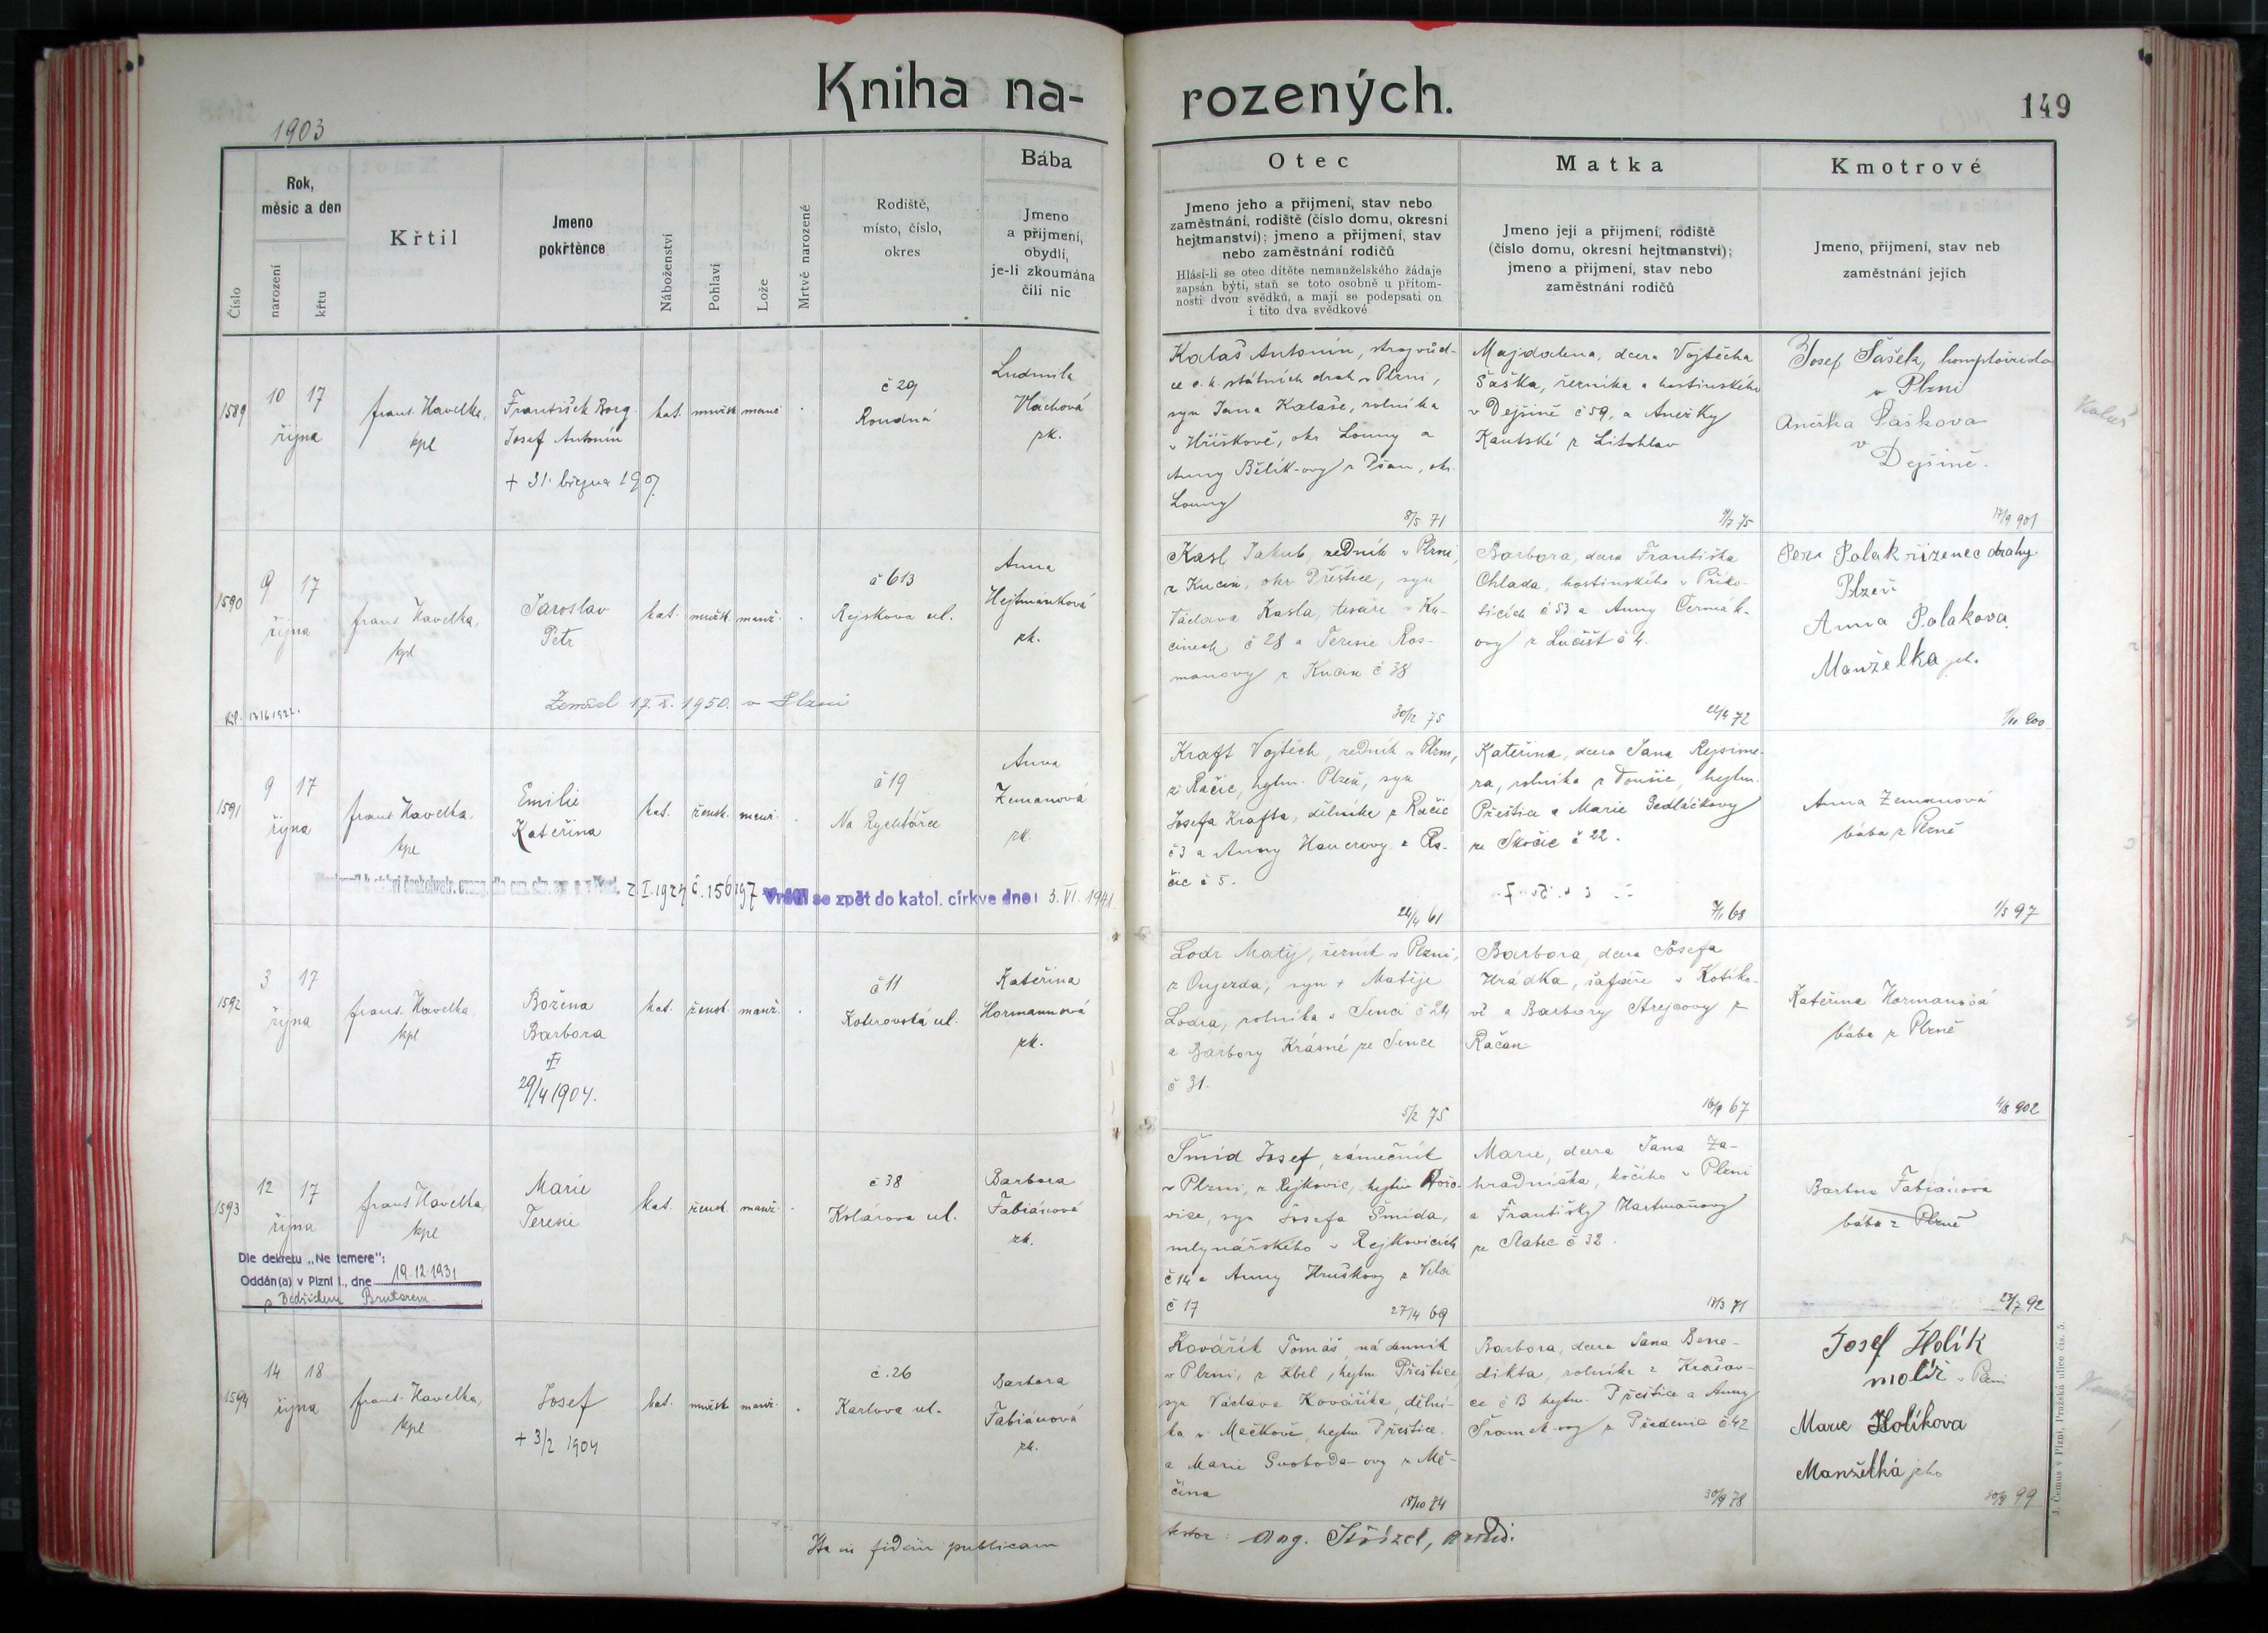 Kniha na-
rozených.
149
1903
Číslo
Rok,
měsíc a den
narození
křtu
Křtil
Jmeno
pokřtěnce
Náboženství
Pohlaví
Lože
Mrtvě narozené
Rodiště,
místo, číslo,
okres
Bába
Jmeno
a přijmení,
obydlí,
je-li zkoumána
čili nic
Otec
Jmeno jeho a přijmení, stav nebo
zaměstnání, rodiště (číslo domu, okresní
hejtmanství); jmeno a přijmení, stav
nebo zaměstnání rodičů
Hlásí-li se otec dítěte nemanželského žádaje
zapsán býti, staň se toto osobně u přítom-
nosti dvou svědků, a mají se podepsati on
i tito dva svědkové
Matka
Jmeno její a přijmení, rodiště
(číslo domu, okresní hejtmanství);
jmeno a přijmení, stav nebo
zaměstnání rodičů
Kmotrové
Jmeno, přijmení, stav neb
zaměstnání jejich
1589
10 17
října
frant. Havelka,
kpl
František Borg.
Josef Antonín
+ 31. března 1907
kat.
mužsk
manž
č 29
Roudná
Ludmila
Vlachová
zk.
Kalaš Antonín, strojvůd-
ce c. k. státních drah v Plzni,
syn Jana Kalaše, rolníka
v Hříškově, okr Louny a
Anny Bělík-ovy z Pšan, okr.
Louny
8/5 71
Majdalena, dcera Vojtěcha
Šaška, řezníka a hostinského
v Dejšině č 59, a Anežky
Kautské z Litohlav
9/7 75
Josef Šašek,
v Plzni
Anežka Šaškova
v
Dejšině.
17/9 901
Kalaš
1590
9 17
října
frant Havelka,
kpl
Jaroslav
Petr
kat.
mužsk.
manž.
č 613
Rejskova ul.
Anna
Hejtmánková
zk.
Zemřel 17. X. 1950. v Plzni
Kasl Jakub, ředník v Plzni,
z Kucin, okr Přeštice, syn
Václava Kasla, tesaře v Ku-
cinech č 28 a Teresie Ros-
manovy z Kucin č 38
30/12 75
Barbora, dcera Františka
Chlada, hostinského v Příko-
sicích č 53 a Anny Čermák-
ovy z Lučišt č 4.
72
Petr Polak zřizenec drahy
Plzeň
Anna Polakova
Manželka jeh.
900
1591
9 17
října
frant Havelka,
kpl
Emilie
Kateřina
kat.
žensk.
manž.
č 19
Na Rychtářce
Anna
Zemanová
zk.
Vrátil se zpět do katol. církve dne: 3. VI. 1941
Kraft Vojtěch, ředník v Plzni,
z Račic, hejtm. Plzeň, syn
Josefa Krafta, dělníka z Račic
č 3 a Anny Hauerovy z Ra-
čic č 5.
24/4 61
Kateřina, dcera Jana
ra, rolníka z hejtm.
Přeštice a Marie Sedláčkovy
ze Skočic č 22.
7/1 68
Anna Zemanová
bába z Plzně
1/3 97
1592
3 17
října
frant. Havelka
kpl
Božena
Barbora
29/4 1904.
kat.
žensk.
manž.
č 11
Koterovská ul.
Kateřina
Hormannová
zk.
Lodr Matěj, řezník v Plzni,
z Oujezda, syn + Matěje
Lodra, rolníka v Senci č 24
a Barbory Krásné ze Sence
č 31.
5/2 75
Barbora, dcera Josefa
Hrádka, šafáře v Kotíko-
vě a Barbory Strejcovy z
Račan
16/9 67
Kateřina Hormanová
bába z Plzně
4/8 902
1593
12 17
října
frant Havelka,
kpl
Marie
Teresie
kat.
žensk.
manž.
č 38
Kolárova ul.
Barbora
Fabiánová
zk.
Dle dekretu „Ne temere":
Oddán(a) v Plzni I., dne 19.12.1931
Šmíd Josef, zámečník
v Plzni, z Rejkovic, hejtm Hořo-
vice, syn Josefa Šmída,
mlynářského v Rejkovicích
č 14 a Anny Hruškovy z Velcí
č 17
27/4 69
Marie, dcera Jana Za-
hradníčka, kočího v Plzni
a Františky Hartmanovy
ze Slabec č 32.
17/3 71
Barbora Fabiánová
bába z Plzně
23/7 92
1594
14 18
října
frant. Havelka,
kpl
Josef
+ 3/2 1904
kat.
mužsk
manž.
č. 26
Karlova ul.
Barbora
Fabiánová
zk.
Kovářík Tomáš, nádenník
v Plzni, z Kbel, hejtm Přeštice,
syn Václava Kováříka, dělní-
ka v Mečkově, hejtm Přeštice.
a Marie Svoboda-ovy z Mě-
čína
18/10 74
Barbora, dcera Jana Bene-
dikta, rolníka z Krašov-
ce č 13 hejtm. Přeštice a Anny
Šramek-ovy z Předenic č 42
30/9 78
Josef Holík
molíř v Plzni
Marie Holíkova
Manželká jeho
99
Ita in fidem publicam
testor:
J. Čemus v Plzni, Pražská ulice čís. 5.